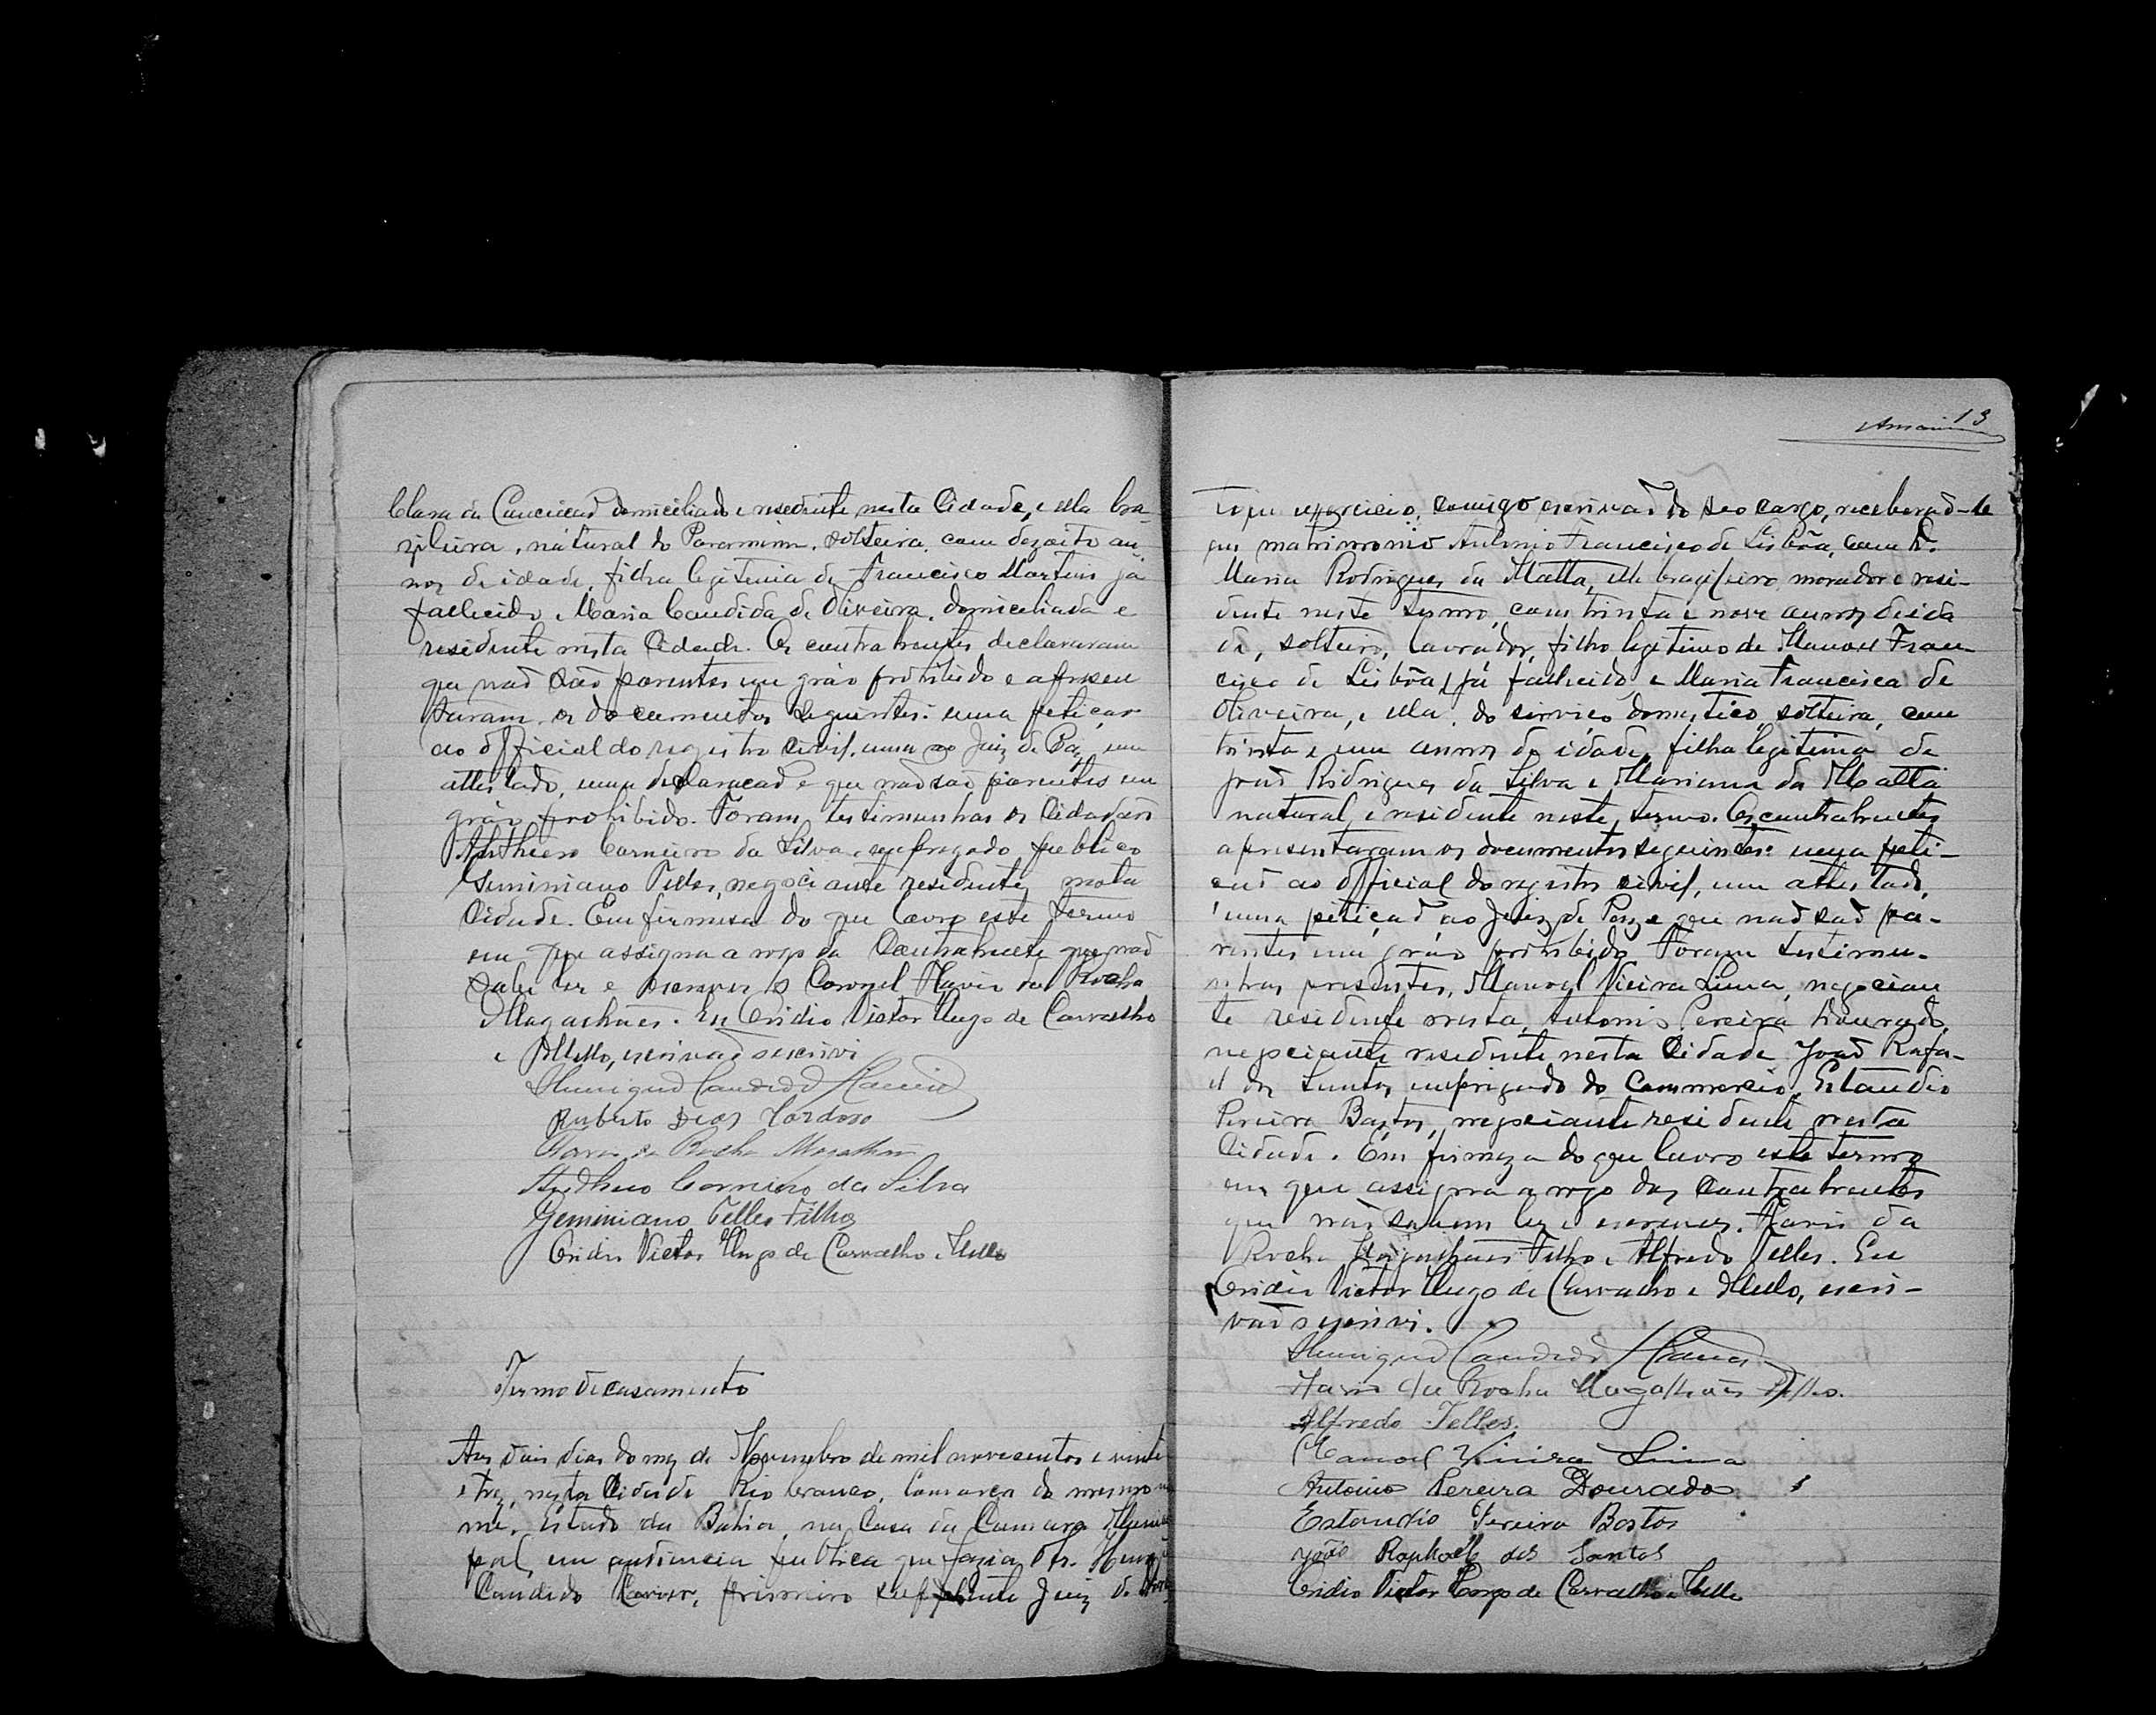 Clara da Conceicaõ domiciliado e residente nesta Cidade, e ella bra-
zileira, natural do Paramirim, solteira, com dezoito an-
nos de idade, filha legitima de Francisco Martins já
fallecido e Maria Candida de Oliveira, domiciliada e
residente nesta Cidade. Os contrahentes declararam
que naõ saõ parentes em gráo prohibido e apresen
taram os documentos seguintes: uma petiçaõ
ao official do registro civil, uma ao Juiz de Paz, um
attestado, uma declaracaõ e que naõ saõ parentes em
gráo prohibido. Foram testimunhas os Cidadaõs
Anthero Carneiro da Silva, empregado publico
Geminiano Telles, negociante residentes nesta
Cidade. Em firmesa do que lavro este termo
em que assigna a rogo da Contrahente que naõ
sabe ler e escrever o Coronel Flavio da Rocha
Magalhães. Eu Enidio Victor Hugo de Carvalho
e Mello, escrivaõ suscrivi
Henrique Candido
Ruberto Dias Cardoso
da Rocha Magalhães
Anthero Carneiro da Silva
Geminiano Telles Filho
Enidio Victor Hugo de Carvalho e Mello
Termo de casamento
Aos dois dias do mez de Novembro de mil novecentos e vinte
e trez, nesta Cidade Rio branco, Comarca do mesmo no
me, Estado da Bahia, na Casa da Camara Munici
pal, em audiencia publica que fazia o
Candido primeiro supplente Juiz de
13
exercicio, comigo escrivaõ do seo cargo, receberaõ-se
em matrimonio Antonio Francisco de Lisbôa, com D.
Maria Rodrigues da Matta, elle brazileiro morador e resi-
dente neste termo, com trinta e nove annos de ida
de, solteiro, lavrador, filho legitimo de Manoel Fran
cisco de Lisbôa, já fallecido, e Maria Francisca de
Oliveira, e ella, do serviço domestico, solteira, com
trinta e um annos de idade, filha legitima de
Joaõ Rodrigues da Silva e Marianna da Matta
natural e residente neste termo. Os contrahentes
apresentaram os documentos seguintes: uma peti-
caõ ao official do registro civil, um attestado,
uma petiçaõ ao Juiz de Paz e que naõ saõ pa-
rentes em gráo prohibido. Foram testimu-
nhas presentes, Manoel Vieira Lima, negocian
te residente nesta, Antonio Pereira Dourado,
negociante residente nesta Cidade Joaõ Rafa-
el dos Santos empregado do Commercio, Estandio
Pereira Bastos, negociante residente nesta
Cidade. Em firmeza do que lavro este termo
em que assigna a rogo dos Contrahentes
que naõ sabem ler e escrever. Flavio da
Rocha Magalhães Filho e Alfredo Telles. Eu
Enidio Victor Hugo de Carvalho e Mello, escri-
vaõ suscrivi.
Henrique Candido
Flavio da Rocha Magalhães Filho.
Alfredo Telles.
Manoel Vieira Lima
Antonio Pereira Dourado
Estandio Pereira Bastos
João Raphael dos Santos
Enidio Victor Hugo de Carvalho e Mello